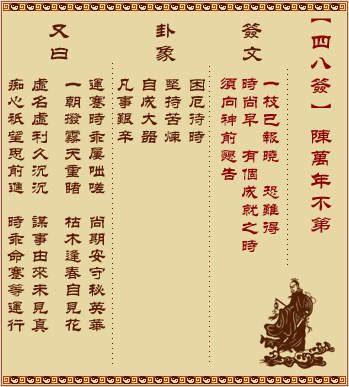 【四八簽】 陳萬年不第
簽文
一枝已報曉 恐難得
時尚早 有個成就之時
須向神前懇告
卦象
困厄待時
堅持苦煉
自成大器
凡事艱辛
又曰
運蹇時乖屢咄嗟 尚期安守秘英華
一朝撥霧天重睹 枯木逢春自見花
虛名虛利久沉沉 謀事由來未見真
痴心祇望思前進 時乖命蹇等運行